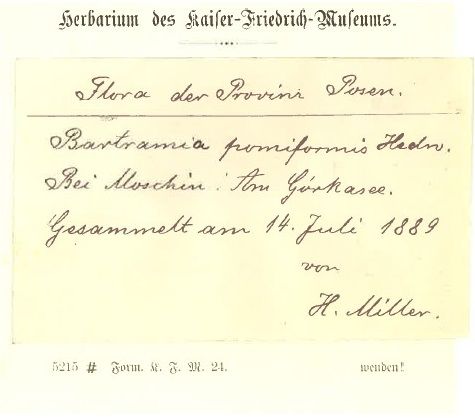 Herbarium des Kaiser-Friedrich-Museums.
Flora der Provinz Posen.
Bartramia pomiformis Hedw.
Bei Moschin: Am Górkasee.
Gesammelt am 14. Juli 1889
von
H. Miller.
5215 # Form. K. F. M. 24. wenden!